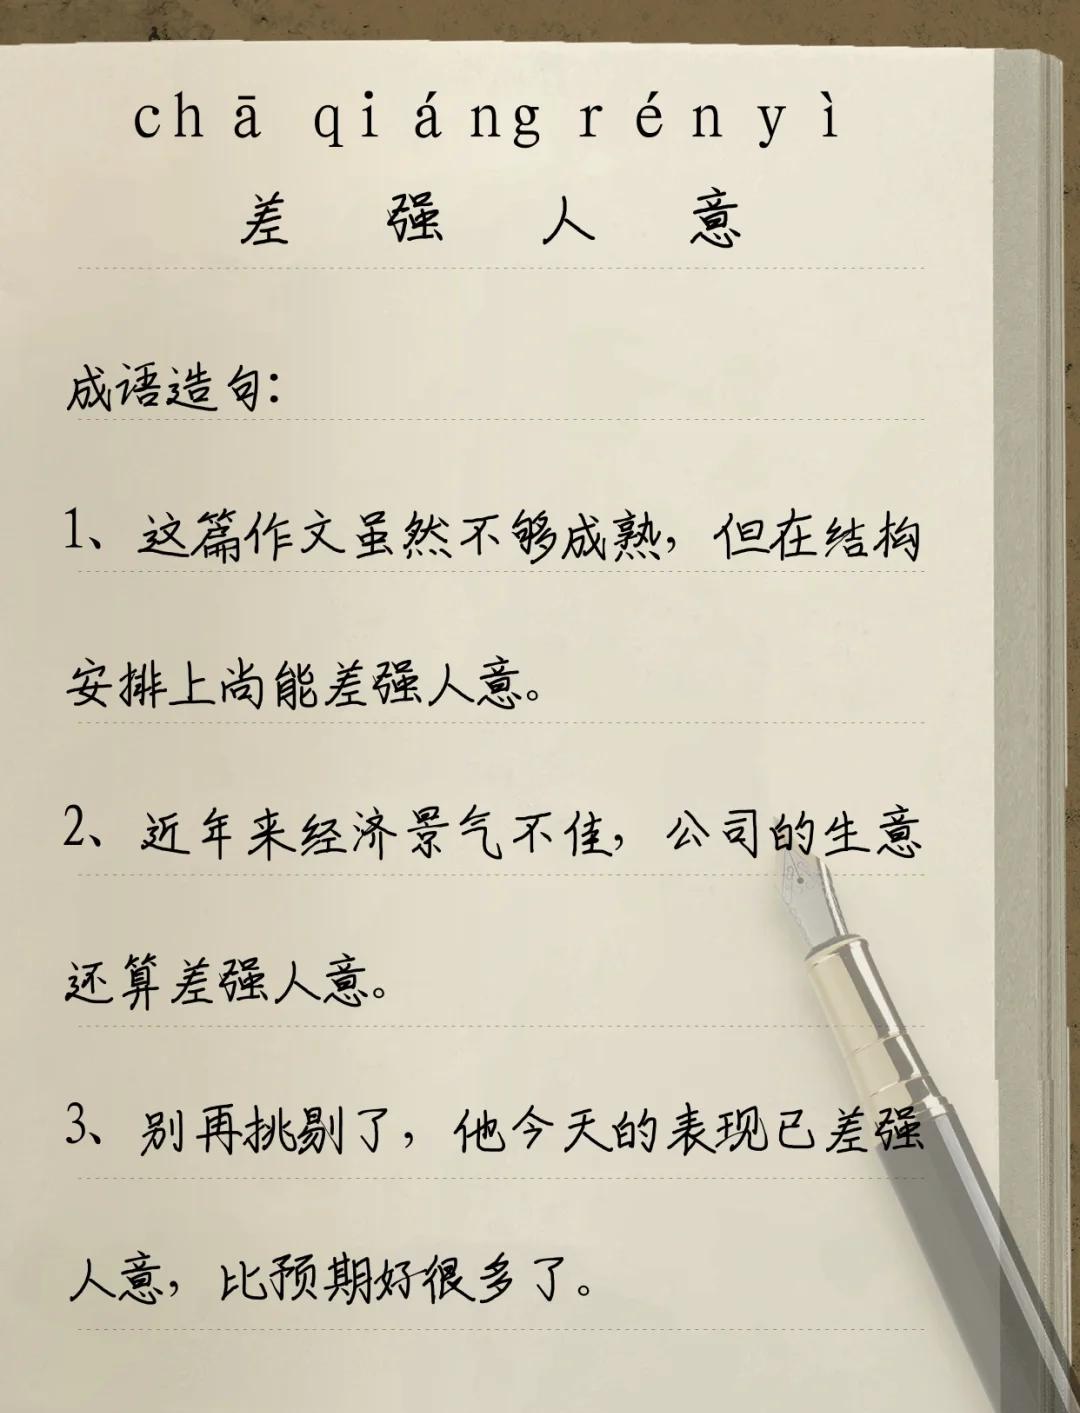 chā qiáng rén yì
差强人意
成语造句：
1、这篇作文虽然不够成熟，但在结构
安排上尚能差强人意。
2、近年来经济景气不佳，公司的生意
还算差强人意。
3、别再挑剔了，他今天的表现已差强
人意，比预期好很多了。